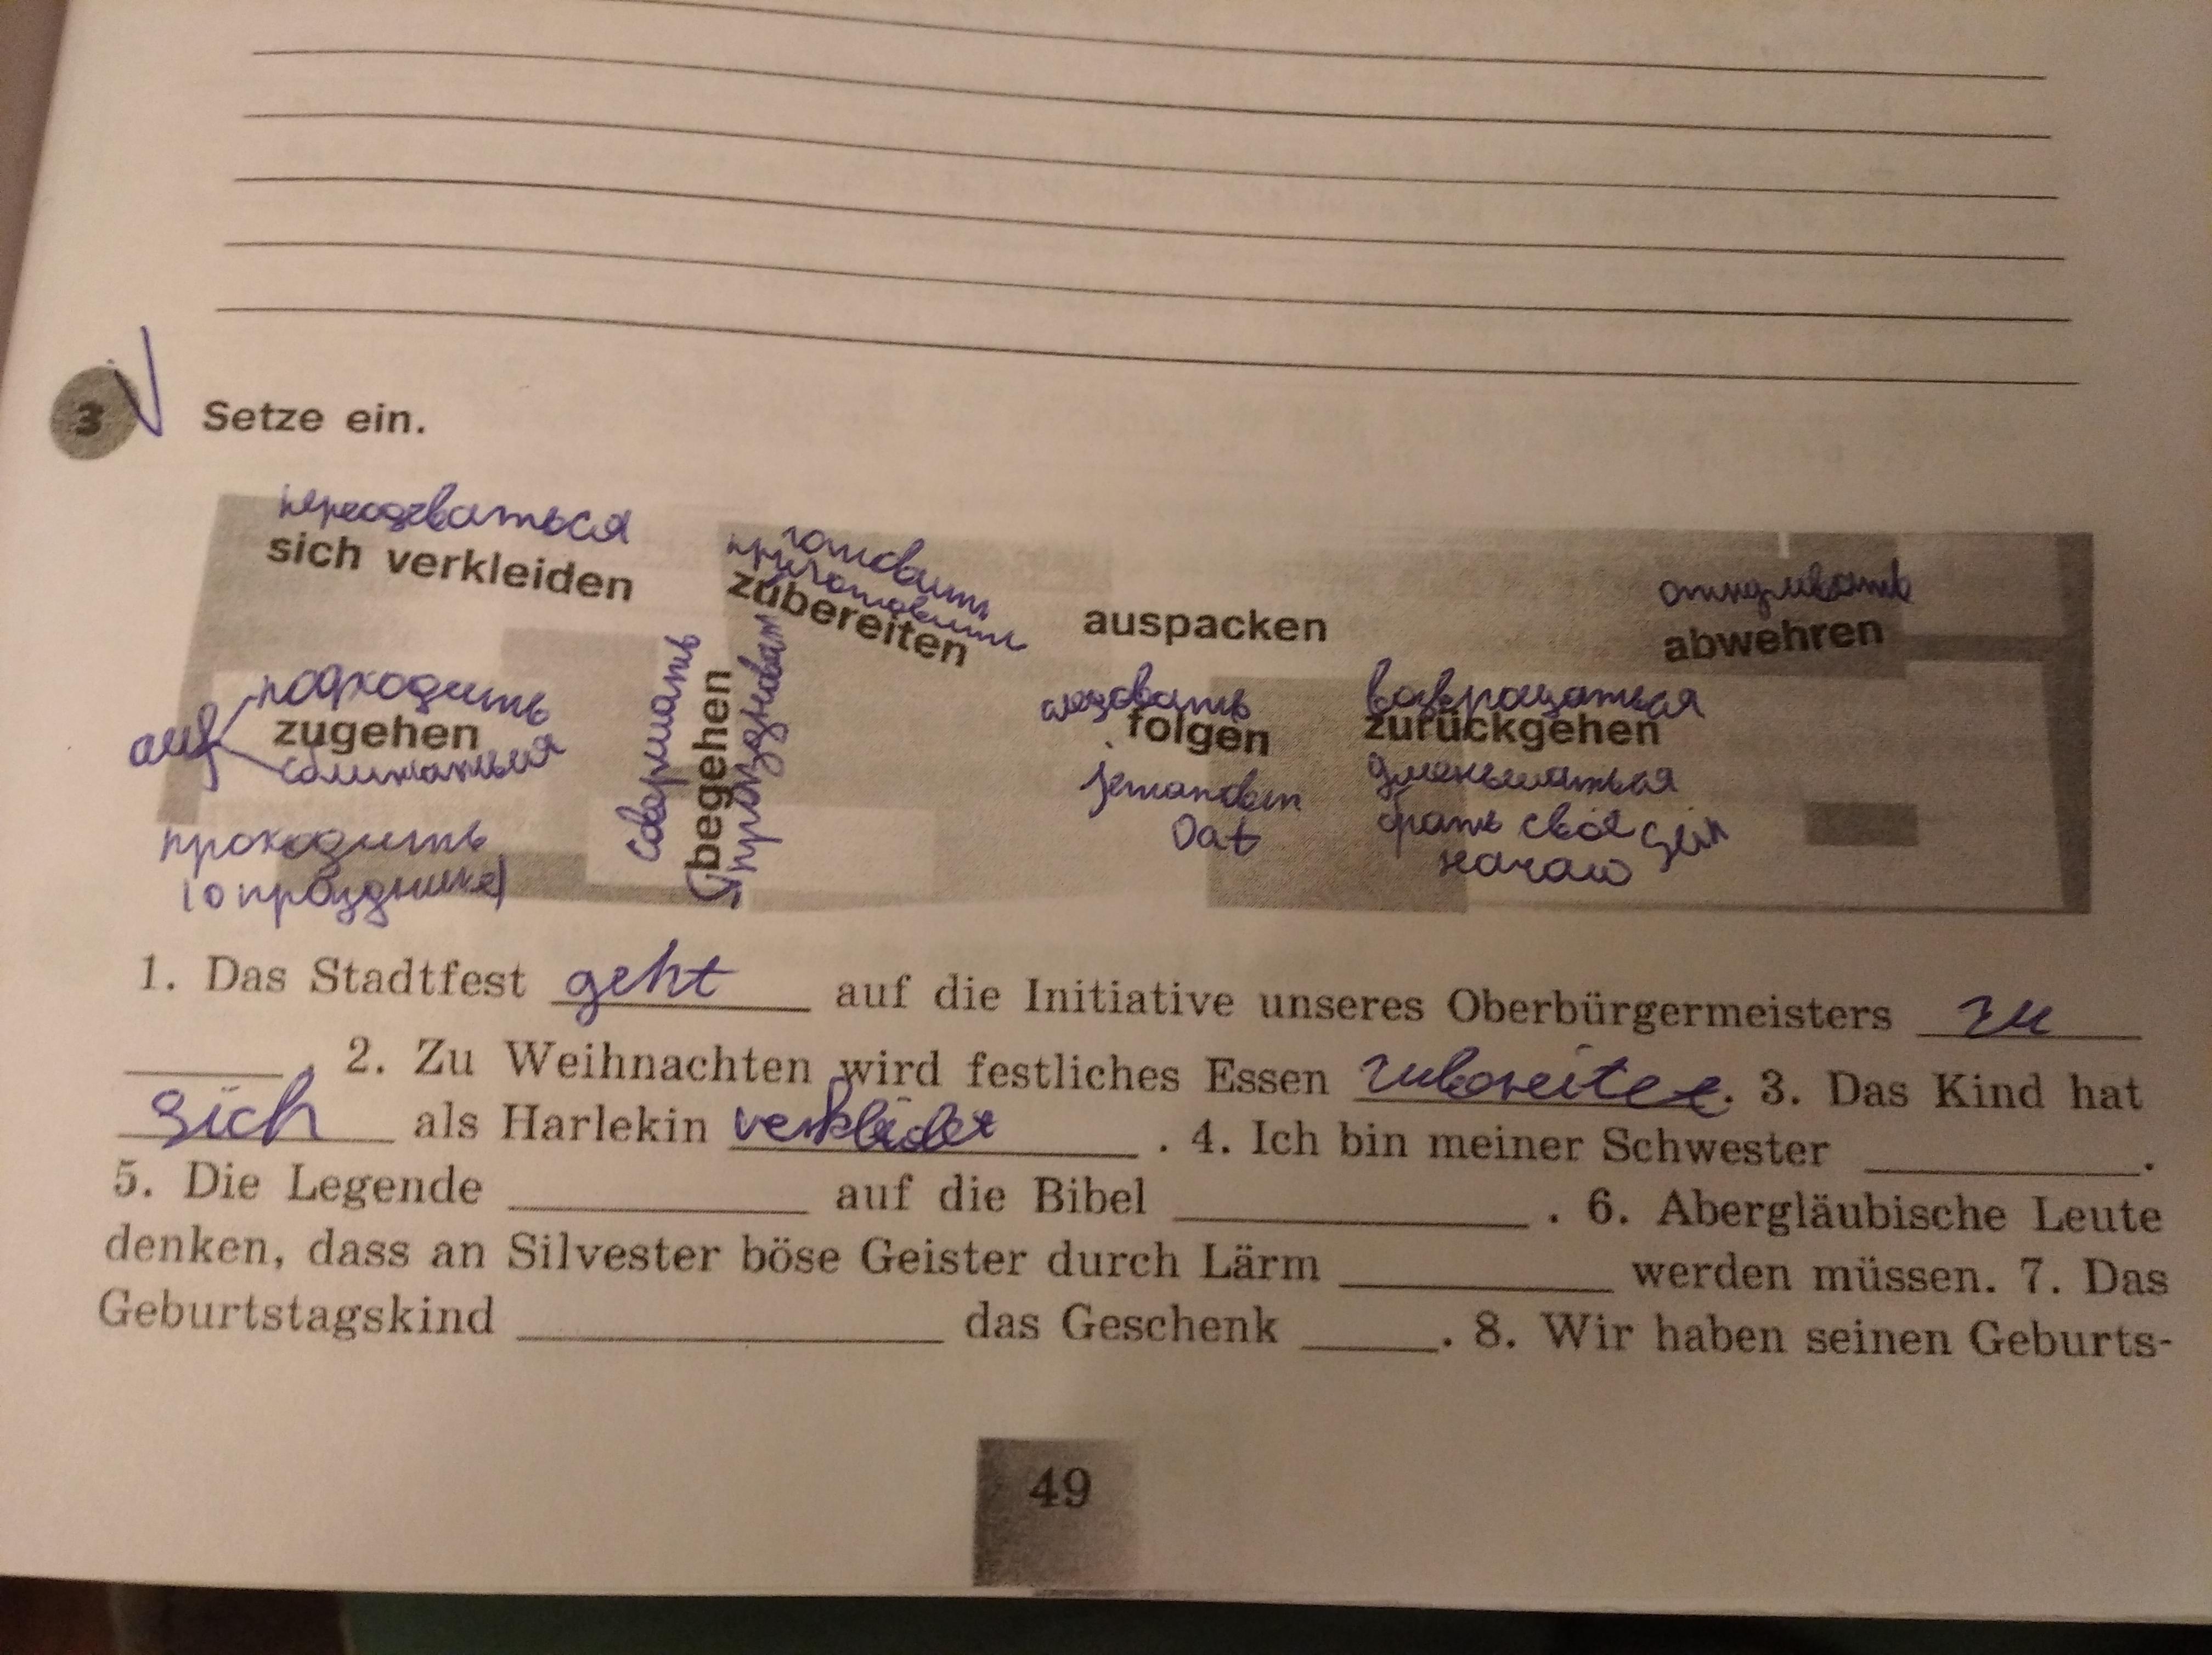 3 Setze ein.
переодеваться
sich verkleiden
готовить
приготовить
zubereiten
auspacken
отпугивать
abwehren
auf
подходить
zugehen
проходить
(о празднике)
совершать
begehen
праздновать
следовать
folgen
jemandem
Dat
возвращаться
zurückgehen
уменьшаться
брать своё
начало
sein
1. Das Stadtfest geht auf die Initiative unseres Oberbürgermeisters zu
. 2. Zu Weihnachten wird festliches Essen zubereitet. 3. Das Kind hat
sich als Harlekin verkleidet . 4. Ich bin meiner Schwester .
5. Die Legende auf die Bibel . 6. Abergläubische Leute
denken, dass an Silvester böse Geister durch Lärm werden müssen. 7. Das
Geburtstagskind das Geschenk . 8. Wir haben seinen Geburts-
49